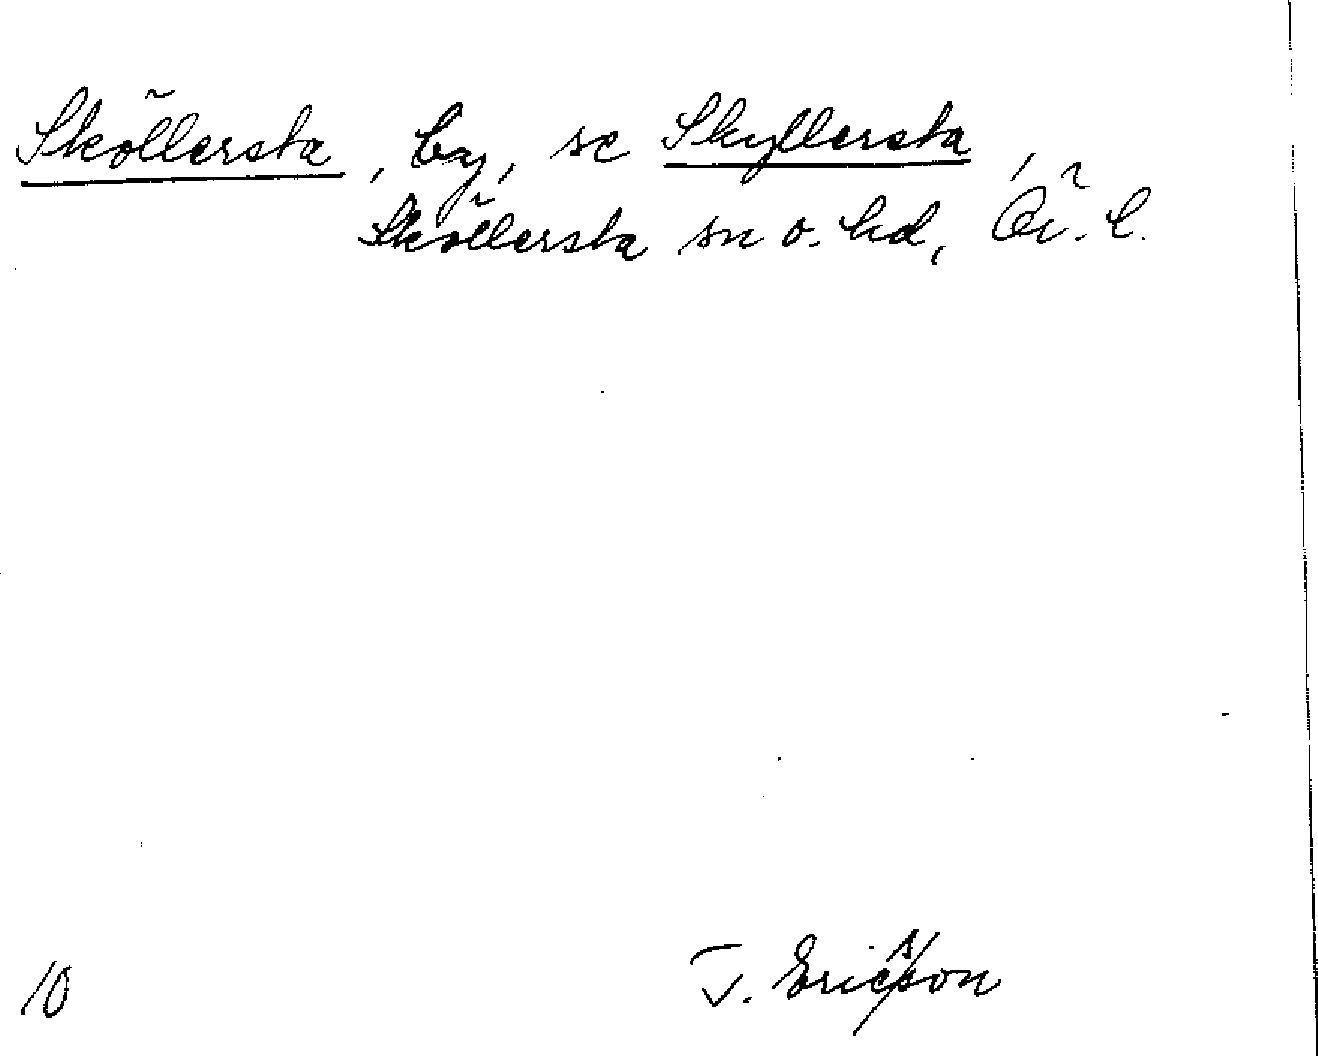 Sköllersta, by, se Skyllersta,
Sköllersta sn o. hd, Ör. l.
10
T. Ericsson